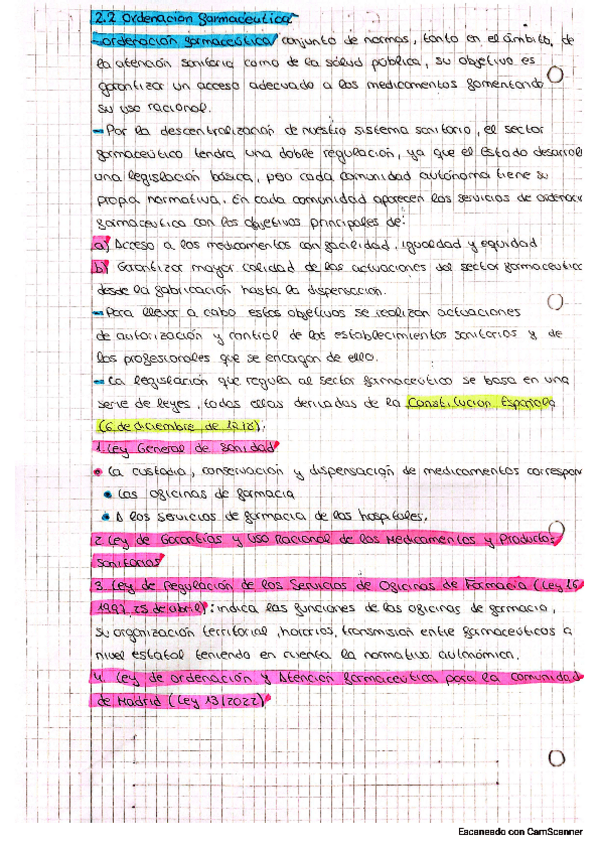 2.2 Ordenación farmacéutica
ordenación farmacéutica conjunto de normas, tanto en el ámbito, de
la atención sanitaria como de la salud pública, su objetivo es
garantizar un acceso adecuado a los medicamentos fomentando
su uso racional.
-Por la descentralización de nuestro sistema sanitario, el sector
farmaceútico tendra una doble regulación, ya que el Estado desarroll
una legislación básica, pero cada comunidad autónoma tiene su
propia normativa. En cada comunidad aparecen los servicios de ordenaci
farmaceutica con los objetivos principales de:
a) Acceso a los medicamentos con facilidad, igualdad y equidad
b) Garantizar mayor calidad de las actuaciones del sector farmaceutico
desde la fabricación hasta la dispensación.
-Para llevar a cabo estos objetivos se realizan actuaciones
de autorización y control de los establecimientos sanitarios y de
los profesionales que se encargan de ello.
-La legislación que regula al sector farmaceutico se basa en una
serie de leyes, todas ellas derivadas de la Constitución Española
(6 de diciembre de 1978):
1. Ley General de Sanidad
• La custodia, conservación y dispensación de medicamentos correspon
• Las oficinas de farmacia
• A los servicios de farmacia de los hospitales.
2. Ley de Garantías y Uso Racional de los Medicamentos y Productos
Sanitarios
3. Ley de Regulación de los Servicios de Oficinas de Farmacia (Ley 16
1997, 25 de abril): indica las funciones de las oficinas de farmacia,
su organización territorial, horarios, transmisión entre farmaceúticos a
nivel estatal teniendo en cuenta la normativa autonómica.
4. Ley de ordenación y Atención farmaceutica para la comunidad
de Madrid (Ley 13/2022)
Escaneado con CamScanner